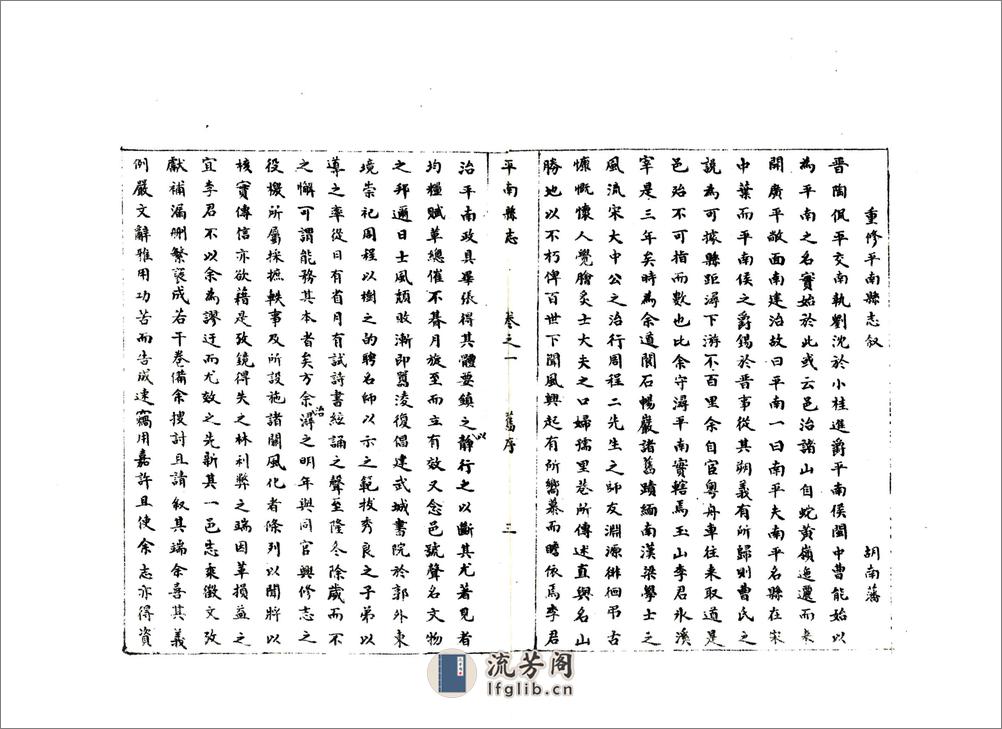 重修平南縣志叙
胡南藩
晋陶侃平交南執劉沈於小桂進爵平南侯閩中曹能始以
為平南之名實始於此或云邑治諸山自蛇黄嶺迤邐而来
開廣平敞面南建治故曰平南一曰南平夫南平名縣在宋
中葉而平南侯之爵錫於晋事從其朔義有所歸則曹氏之
説為可據縣距潯下游不百里余自宦粤舟車往来取道是
邑殆不可指而數也比余守潯平南實轄焉玉山李君永溪
宰是三年矣時為余道閬石暢巖諸舊蹟緬南漢梁學士之
風流宋大中公之治行周程二先生之師友淵源徘徊弔古
慷慨懷人覺膾炙士大夫之口婦孺里巷所傳述直與名山
勝地以不朽俾百世下聞風興起有所嚮慕而瞻依焉李君
平南縣志
卷之一
舊序
三
治平南政具畢張得其體要鎮之以静行之以斷其尤著見者
均糧賦革總催不朞月旋至而立有效又念邑號聲名文物
之邦邇日士風頽敗漸即舊淩復倡建武城書院於郭外東
境崇祀周程以樹之的聘名師以示之範拔秀良之子弟以
導之率從日有省月有試詩書經誦之聲至隆冬除歲而不
之懈可謂能務其本者矣方余治潯之明年與同官興修志之
役檄所屬採摭軼事及所設施諸關風化者條列以聞將以
核實傳信亦欲藉是攷鏡得失之林利弊之端因革損益之
宜李君不以余為謬迂而尤效之先新其一邑志乘徵文攷
獻補漏刪繁裒成若干卷備余搜討且請叙其端余喜其義
例嚴文辭雅用功苦而告成速竊用嘉許且使余志亦得資
流芳阁
lfglib.cn